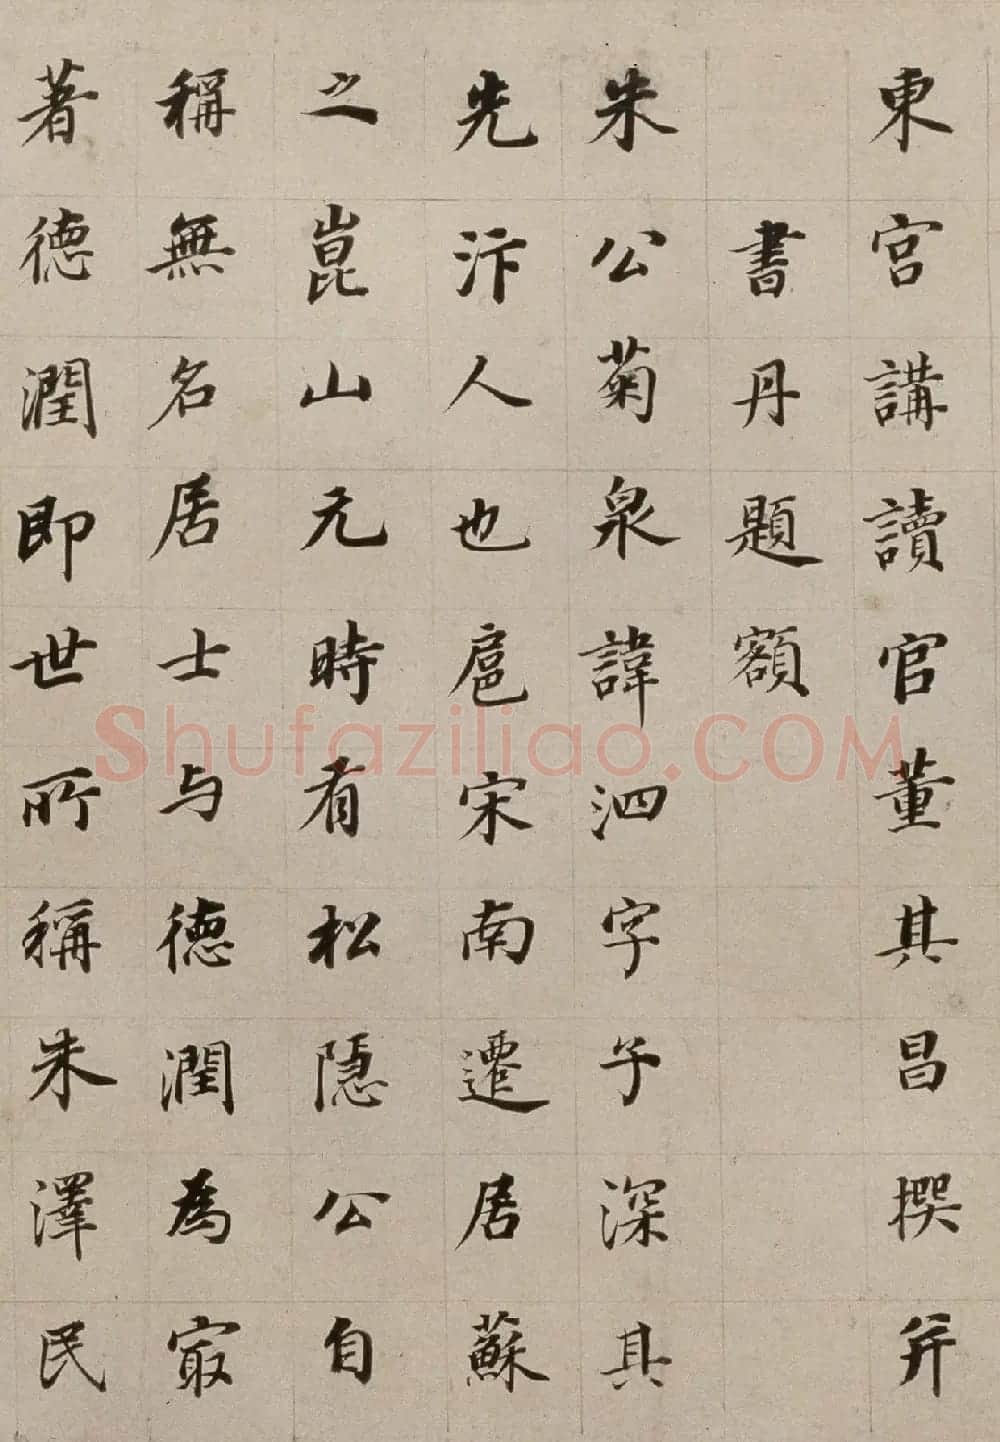 東宮講讀官董其昌撰并
書丹題額
朱公菊泉諱泗字子深其
先汴人也扈宋南遷居蘇
之崑山元時有松隱公自
稱無名居士与德潤為冣
著德潤即世所稱朱澤民
Shufaziliao.COM